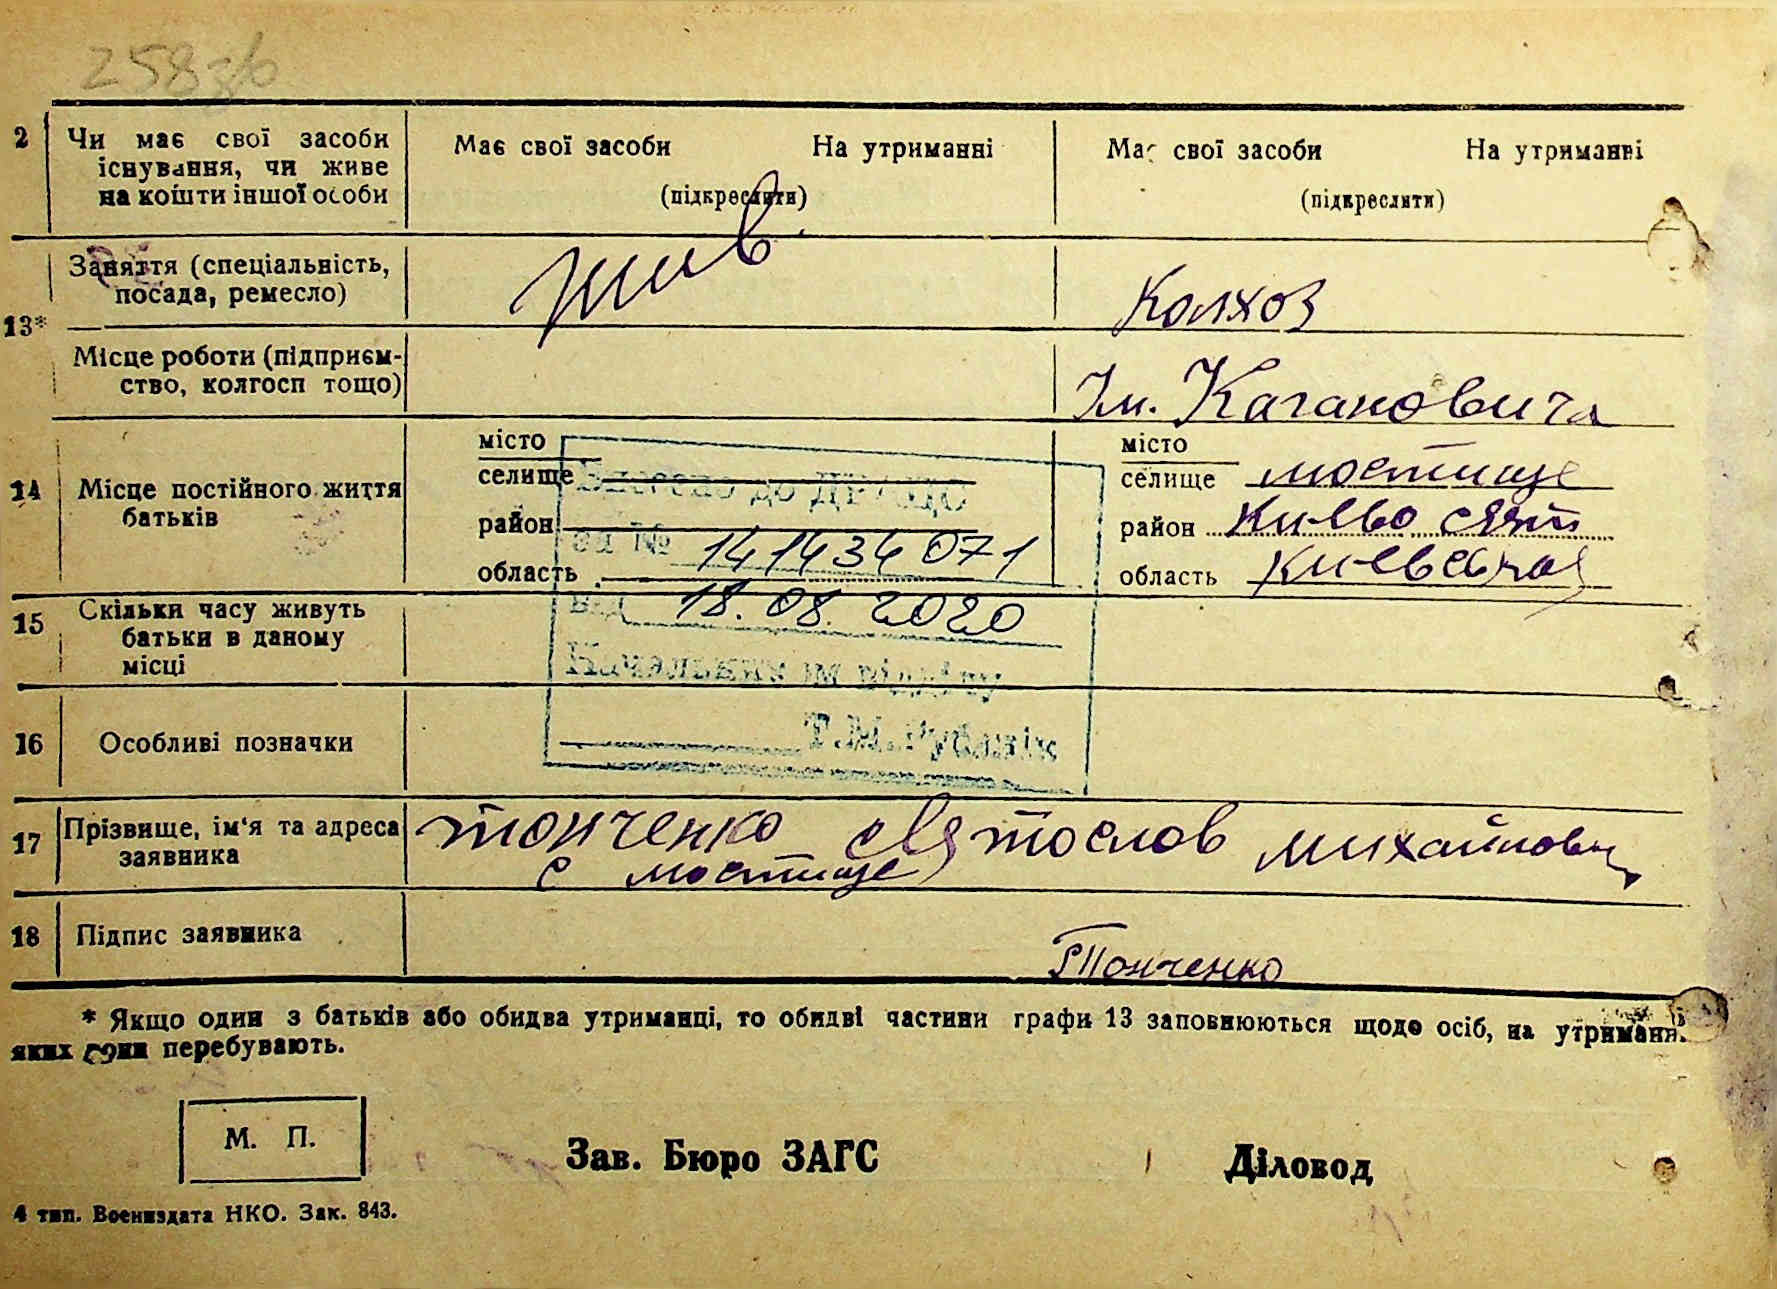 258 зв
2 Чи має свої засоби існування, чи живе на кошти іншої особи
Має свої засоби На утриманні
(підкреслити)
Має свої засоби На утриманні
(підкреслити)
13*
Заняття (спеціальність, посада, ремесло)
Колхоз
Місце роботи (підприєм-
ство, колгосп тощо)
Им. Кагановича
14 Місце постійного життя батьків
місто
селище
район
область
місто
селище мостище
район Киево свят
область Киевская
за № 141434071
від 18.08.2020
Начальник відділу
Т.М.Рубаник
15 Скільки часу живуть батьки в даному місці
16 Особливі позначки
17 Прізвище, ім'я та адреса заявника
тонченко святослов михайлович
с мостище
18 Підпис заявника
Тонченко
* Якщо один з батьків або обидва утриманці, то обидві частини графи 13 заповнюються щодо осіб, на утриманні
яких вони перебувають.
М. П.
Зав. Бюро ЗАГС
Діловод
4 тип. Воениздата НКО. Зак. 843.